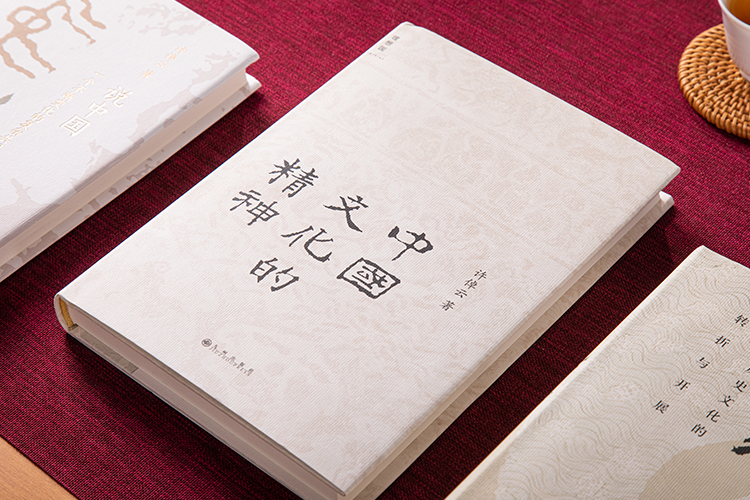 中國
文化的
精神
许倬云 著
九州出版社
说中国
史文化的
转折与开展